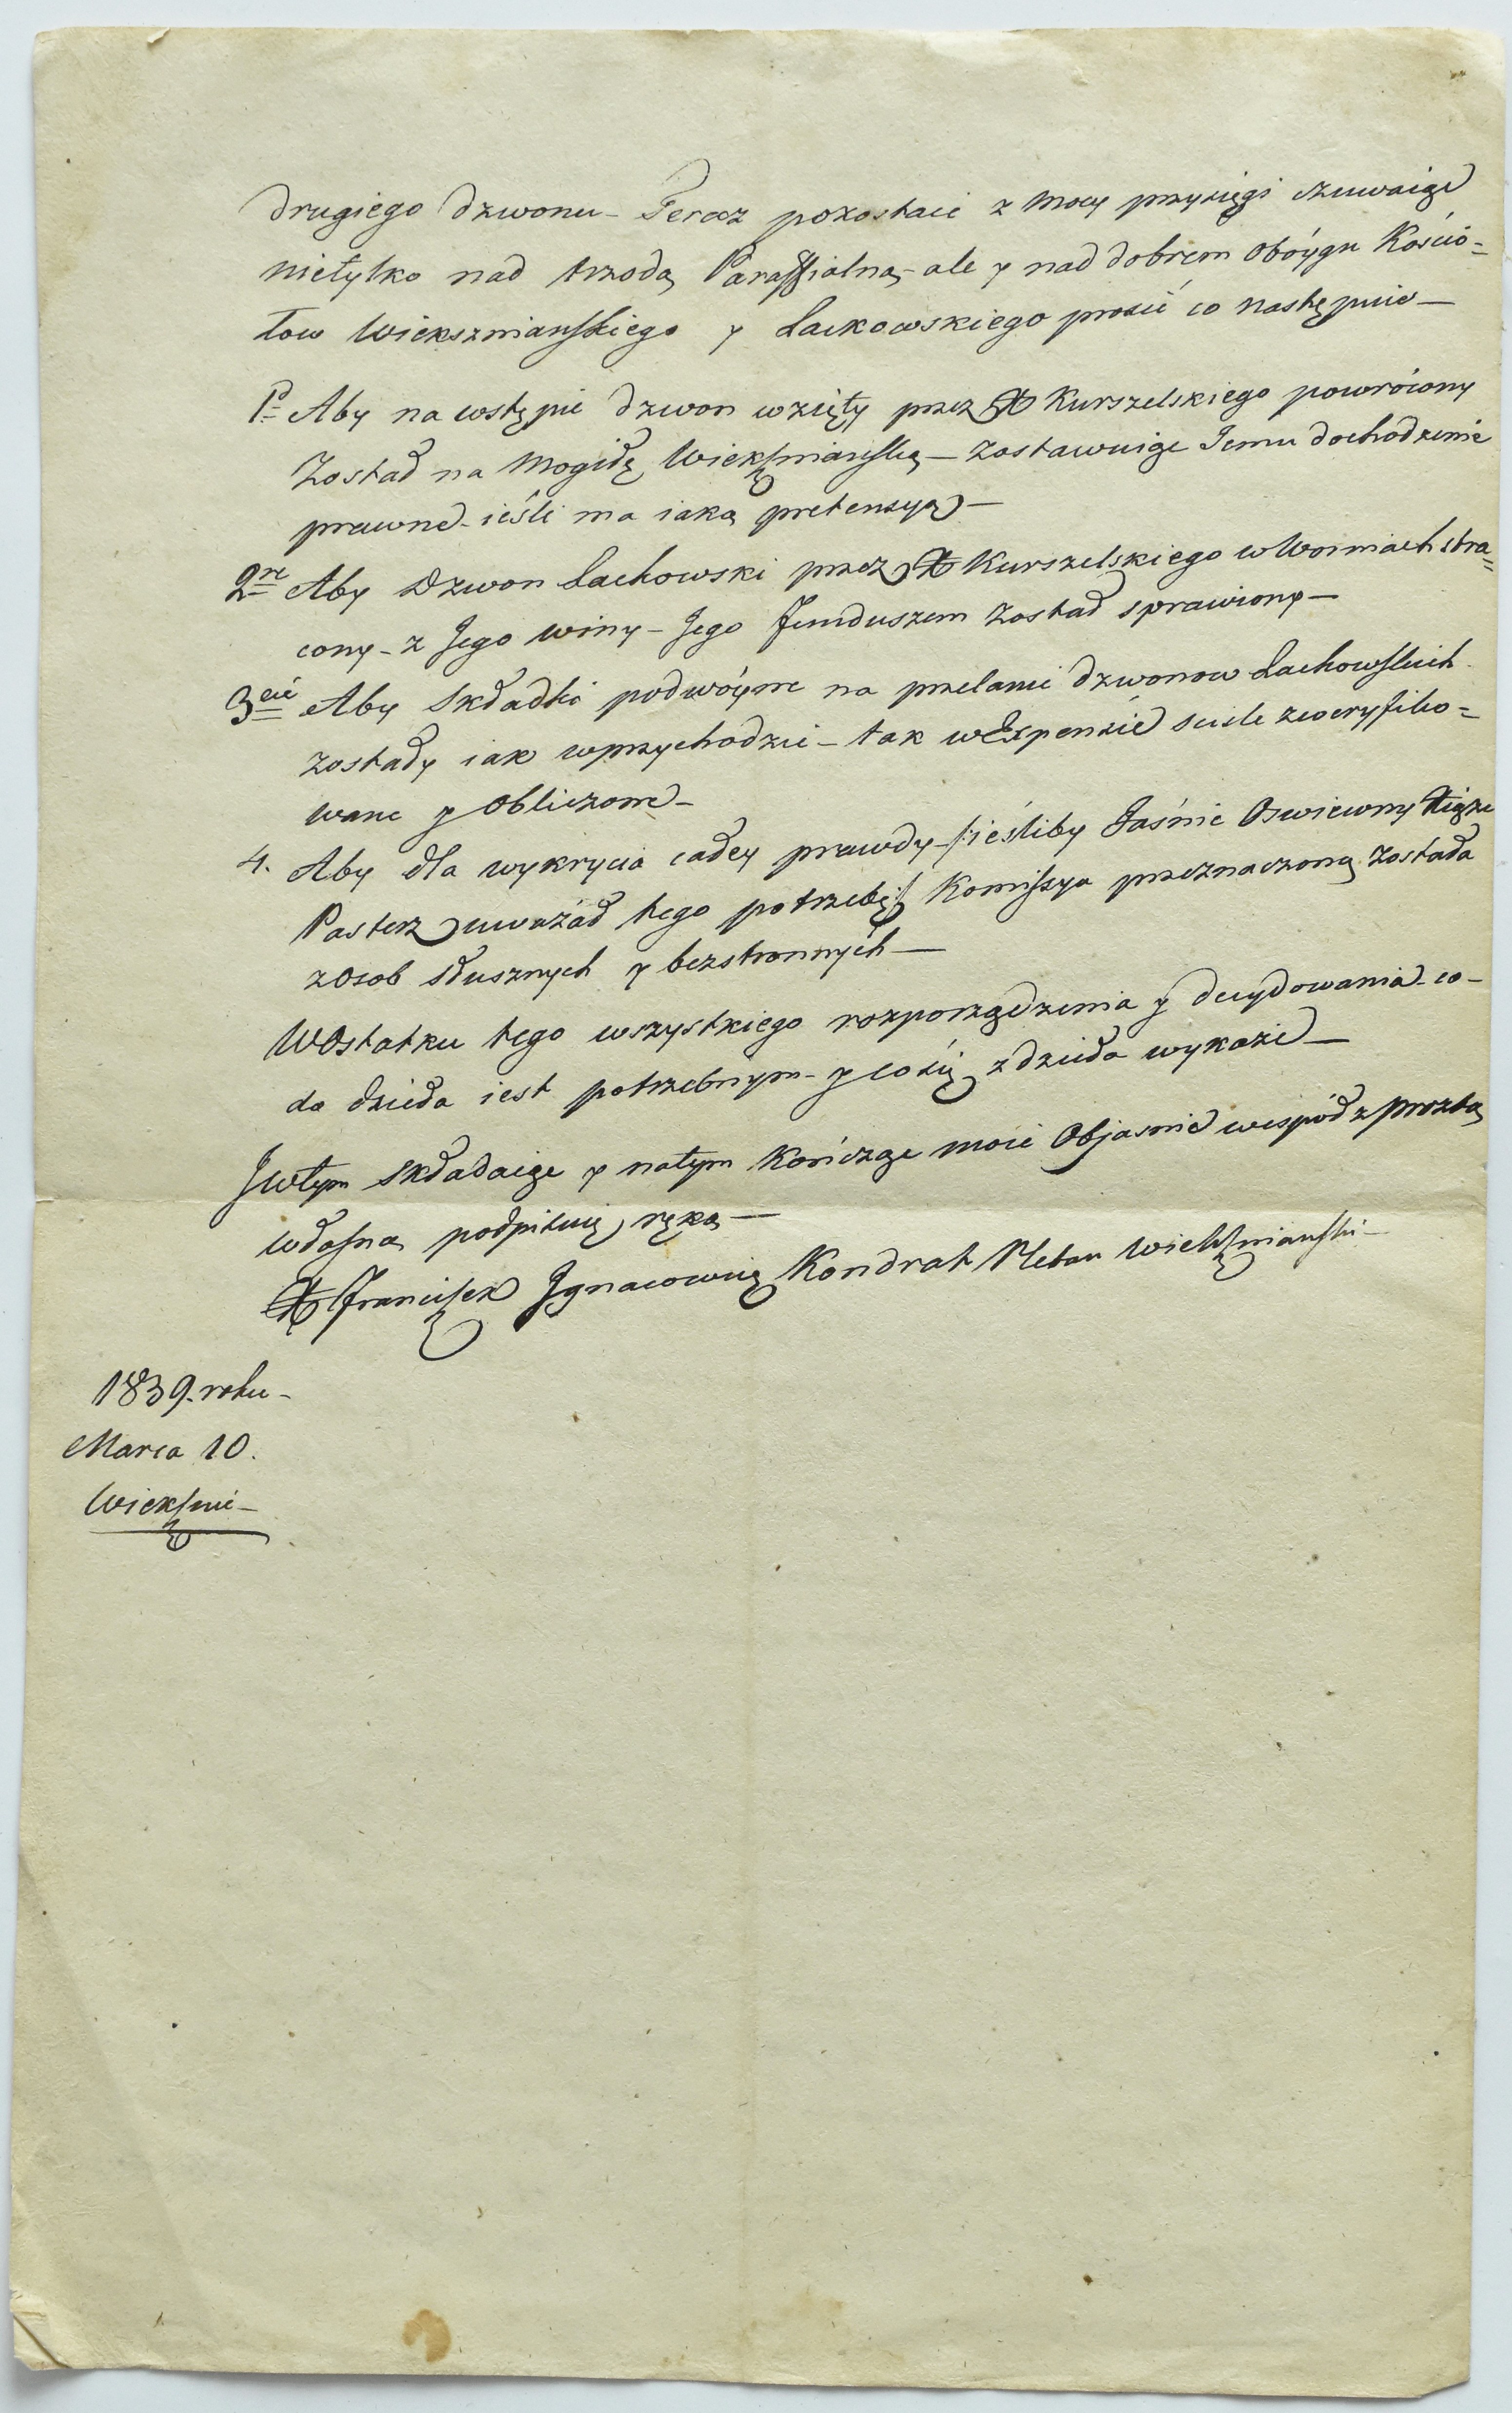 drugiego dzwonu – Teraz pozostaie z mocy przysięgi czuwaiąc
nietylko nad trzodą Paraffialną – ale y nad dobrem oboyga Kościo=
łow Wiekszniańskiego y Lackowskiego prosić co następnie –
1o Aby na wstępie dzwon wzięty przez X Kurszelskiego powrócony
Został na Mogiłę Wiekszniańską – zostawuiąc Jemu dochodzenie
prawne – ieśli ma iaką pretensyą –
2re Aby Dzwon Lachowski przez X Kurszelskiego w Worniach stra=
cony – z Jego winy – Jego Funduszem Został sprawiony –
3cie Aby Składki podwóyne na przelanie dzwonow Lachowskich
zostały iak wprzychodzie – tak w Expensie scisle zweryfiko=
wane y Obliczone –
4. Aby dla wykrycia całey prawdy /: ieśliby Jaśnie Oswiecony Xiąże
Pasterz uważał tego potrzebę :/ Komissya przeznaczoną Została
z Osob słusznych y bezstronnych –
W Ostatku tego wszystkiego rozporządzenia y decydowania – co –
do dzieła iest potrzebnym – y cosię z dzieła wykaże –
J wtym składaiąc y natym Kończąc moie Objasnie wespół z prozbą
własną podpisuię ręką –
X Franciszek Ignacowicz Kondrat Pleban Wiekszniański –
1839. roku –
Marca 10.
Wieksznie –